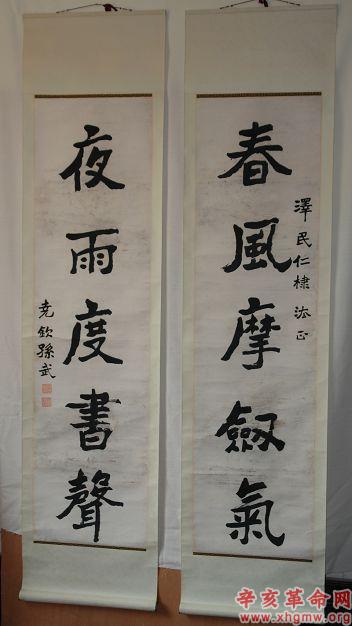 春風摩劒氣
澤民仁棣法正
夜雨度書聲
堯欽孫武
辛亥革命网
www.xhgmw.org